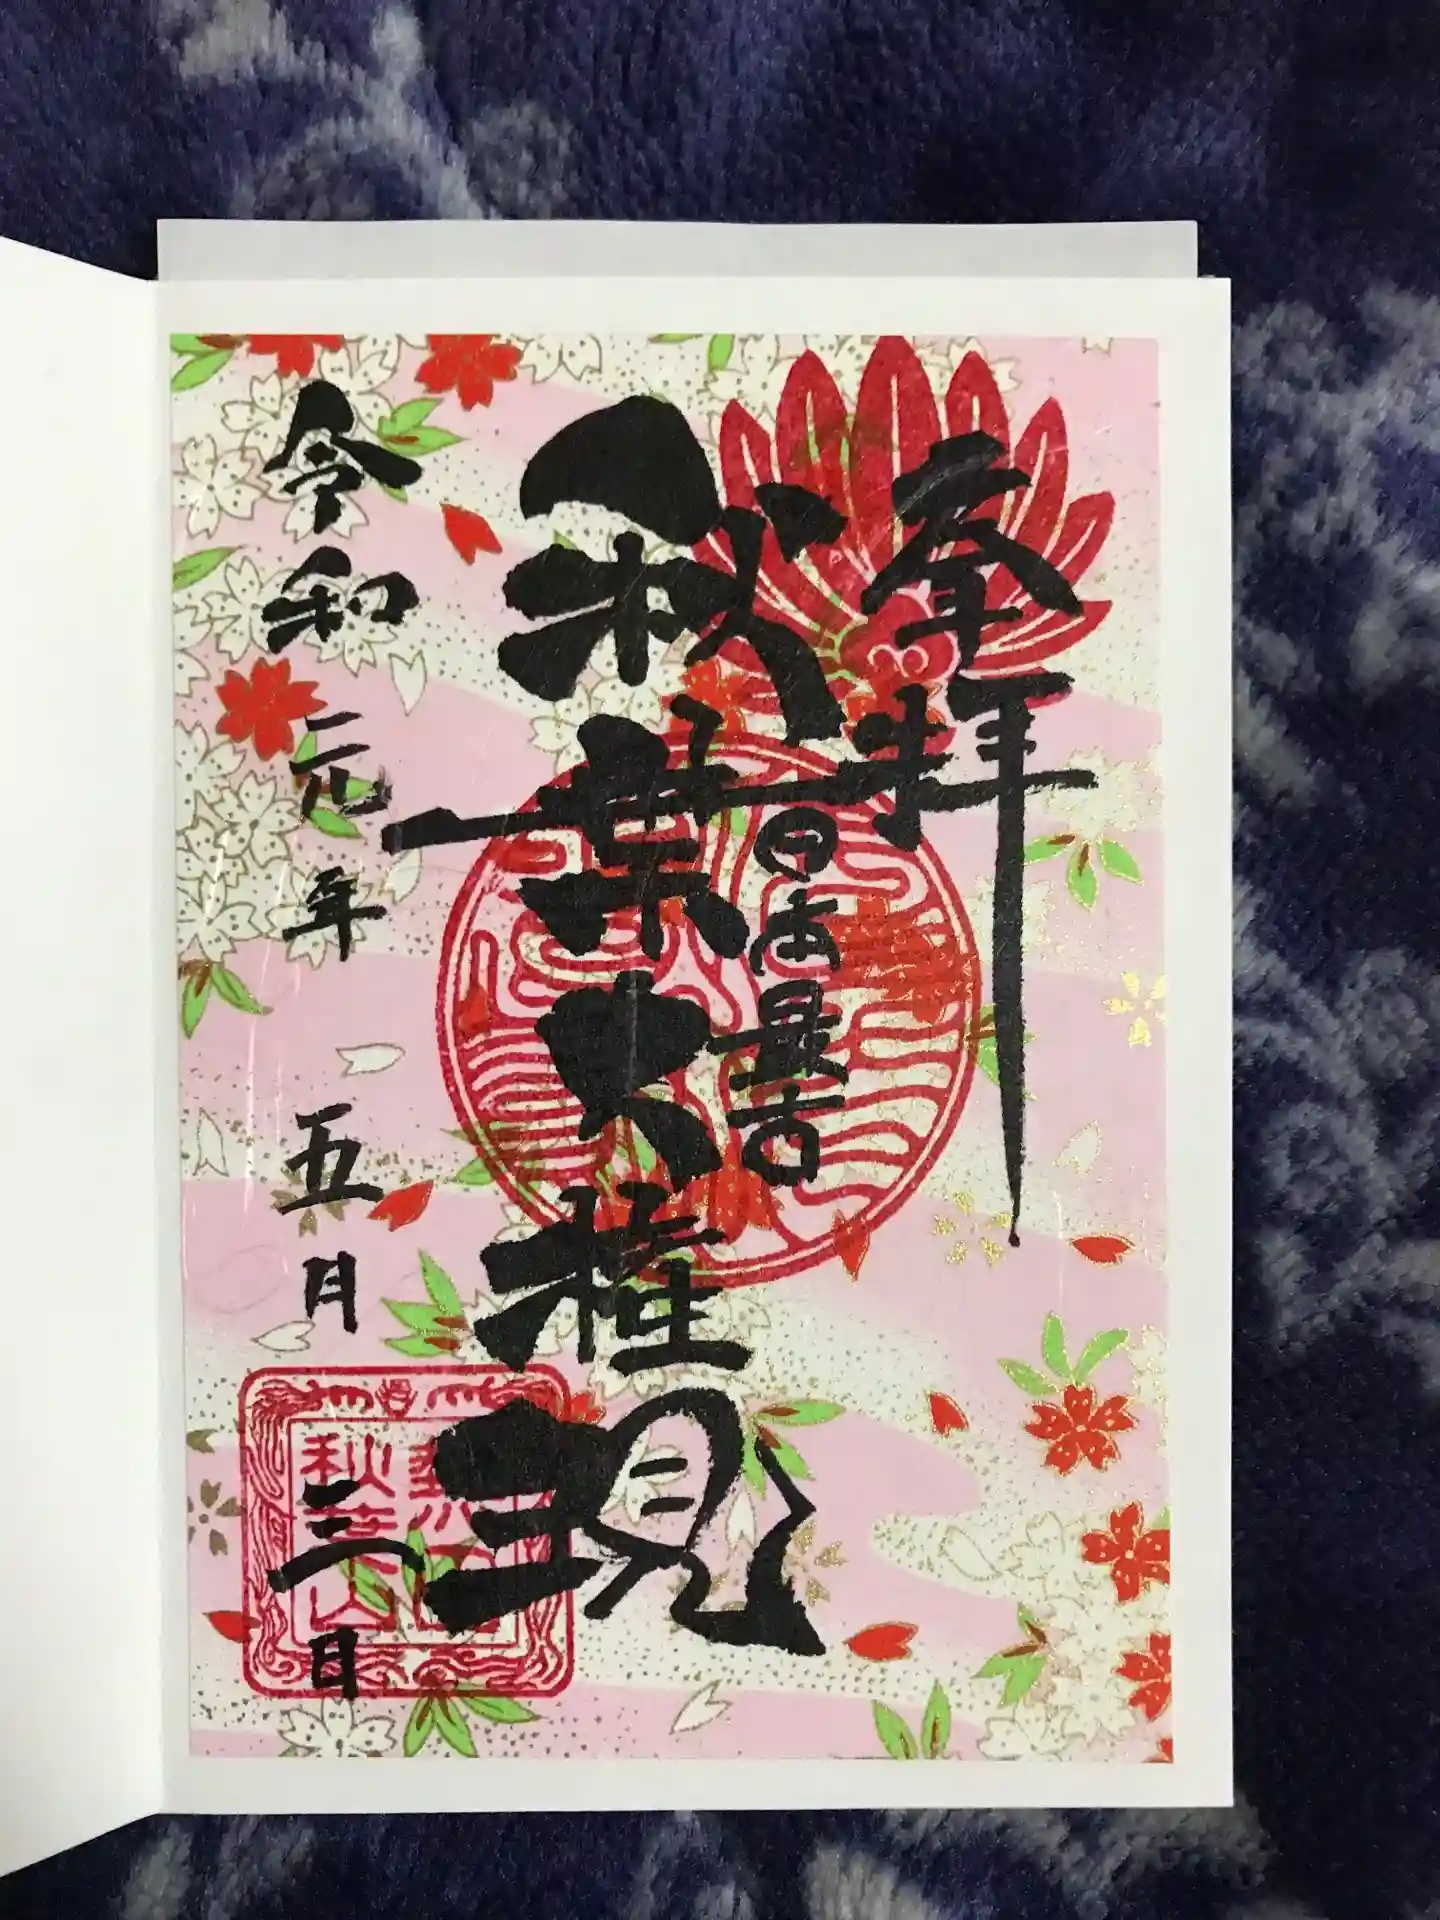 奉拝
日本最古
秋葉大権現
令和元年五月三日
秋葉山